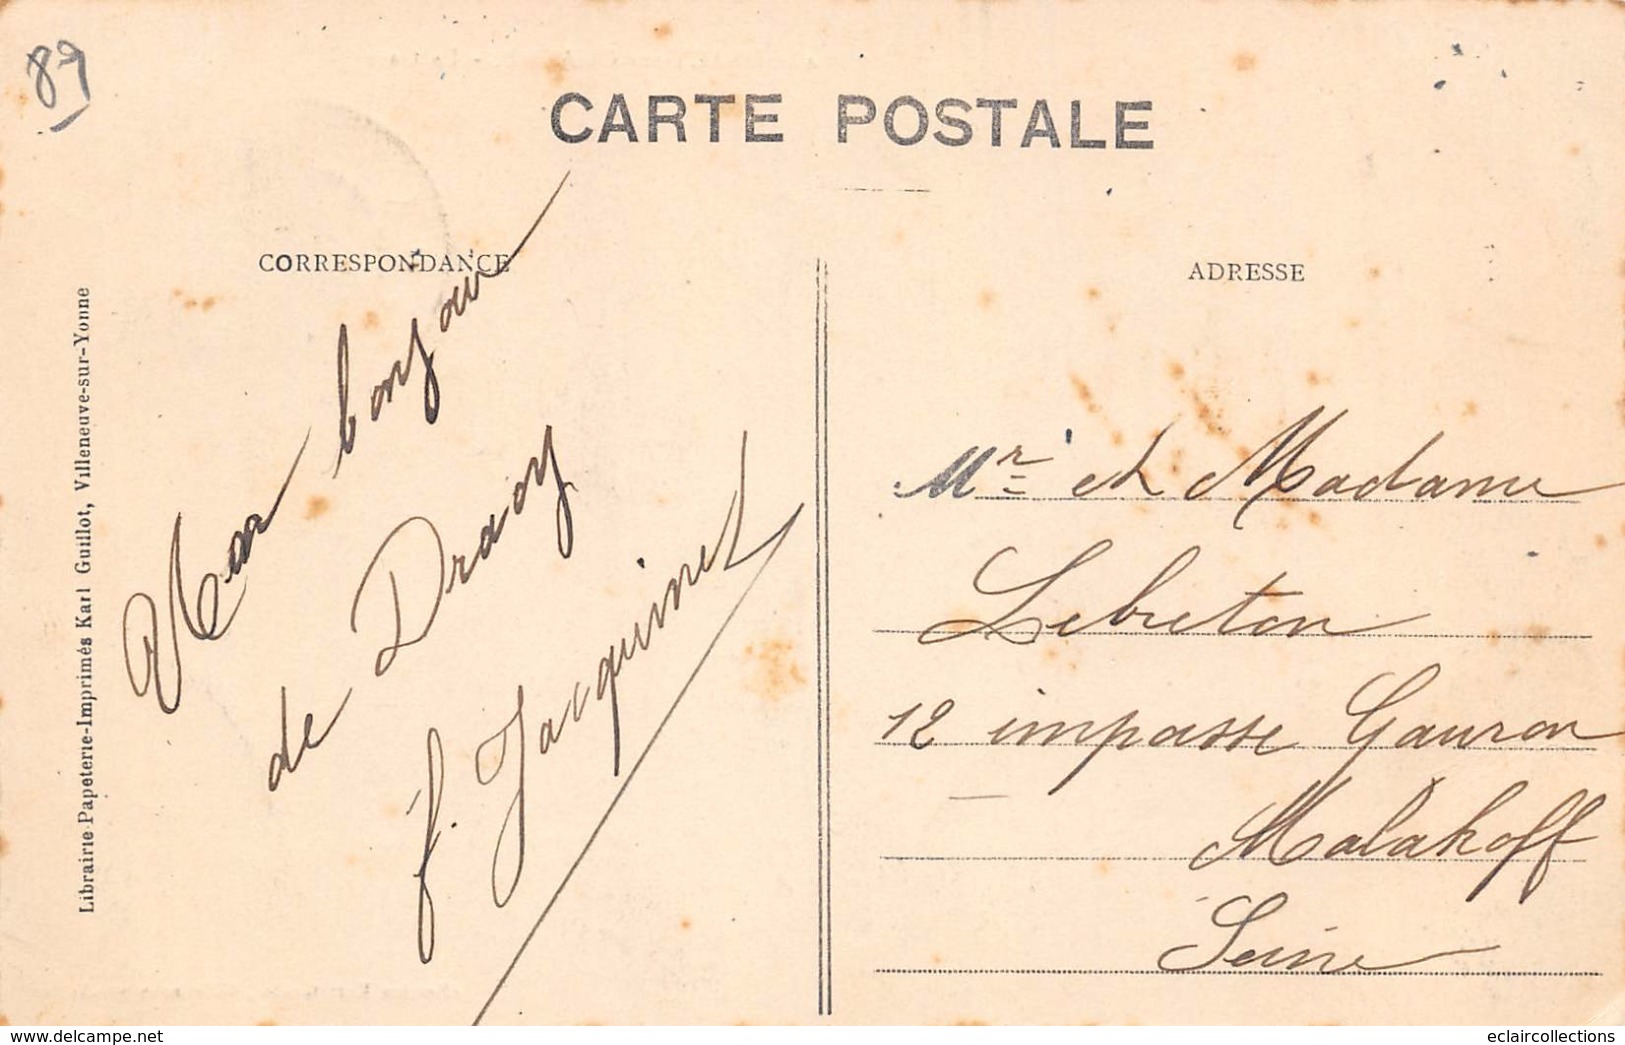 89
CARTE POSTALE
CORRESPONDANCE
ADRESSE
Librairie-Papeterie-Imprimés Karl Guillot, Villeneuve-sur-Yonne
bonjour
de Dracy
f. Jacquinet
Mr et Madame
Lebreton
12 impasse Gauron
Malakoff
Seine
www.delcampe.net
eclaircollections